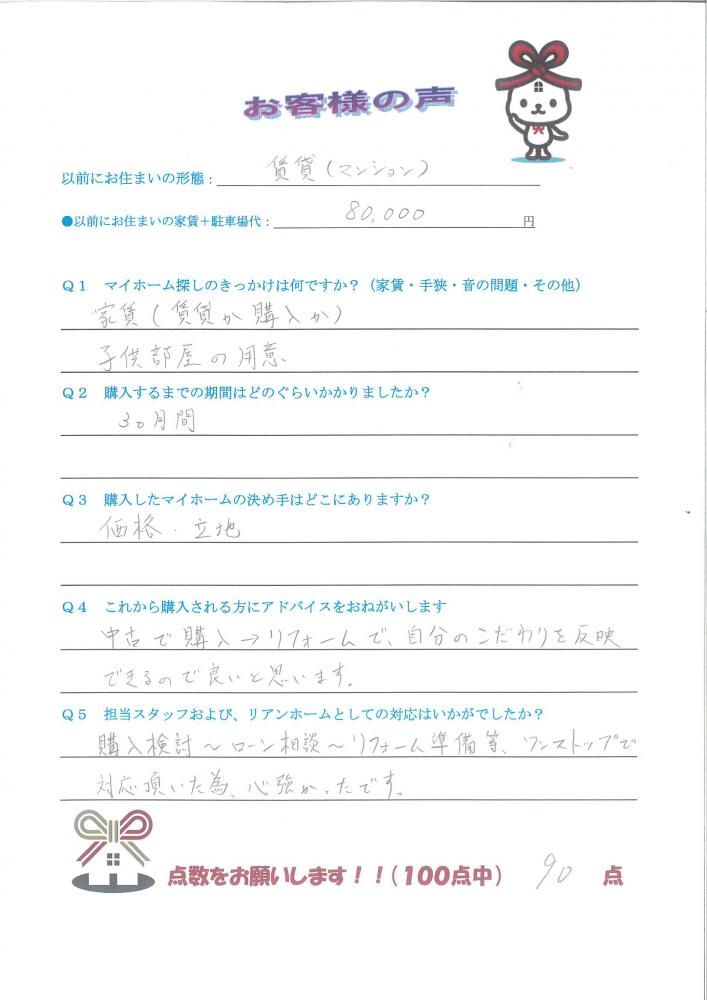 お客様の声
以前にお住まいの形態：賃貸（マンション）
●以前にお住まいの家賃＋駐車場代：80,000円
Ｑ１　マイホーム探しのきっかけは何ですか？（家賃・手狭・音の問題・その他）
家賃（賃貸か購入か）
子供部屋の用意
Ｑ２　購入するまでの期間はどのぐらいかかりましたか？
3ヵ月間
Ｑ３　購入したマイホームの決め手はどこにありますか？
価格・立地
Ｑ４　これから購入される方にアドバイスをおねがいします
中古で購入→リフォームで、自分のこだわりを反映
できるので良いと思います。
Ｑ５　担当スタッフおよび、リアンホームとしての対応はいかがでしたか？
購入検討～ローン相談～リフォーム準備等、ワンストップで
対応頂いた為、心強かったです。
点数をお願いします！！（100点中）　90　点